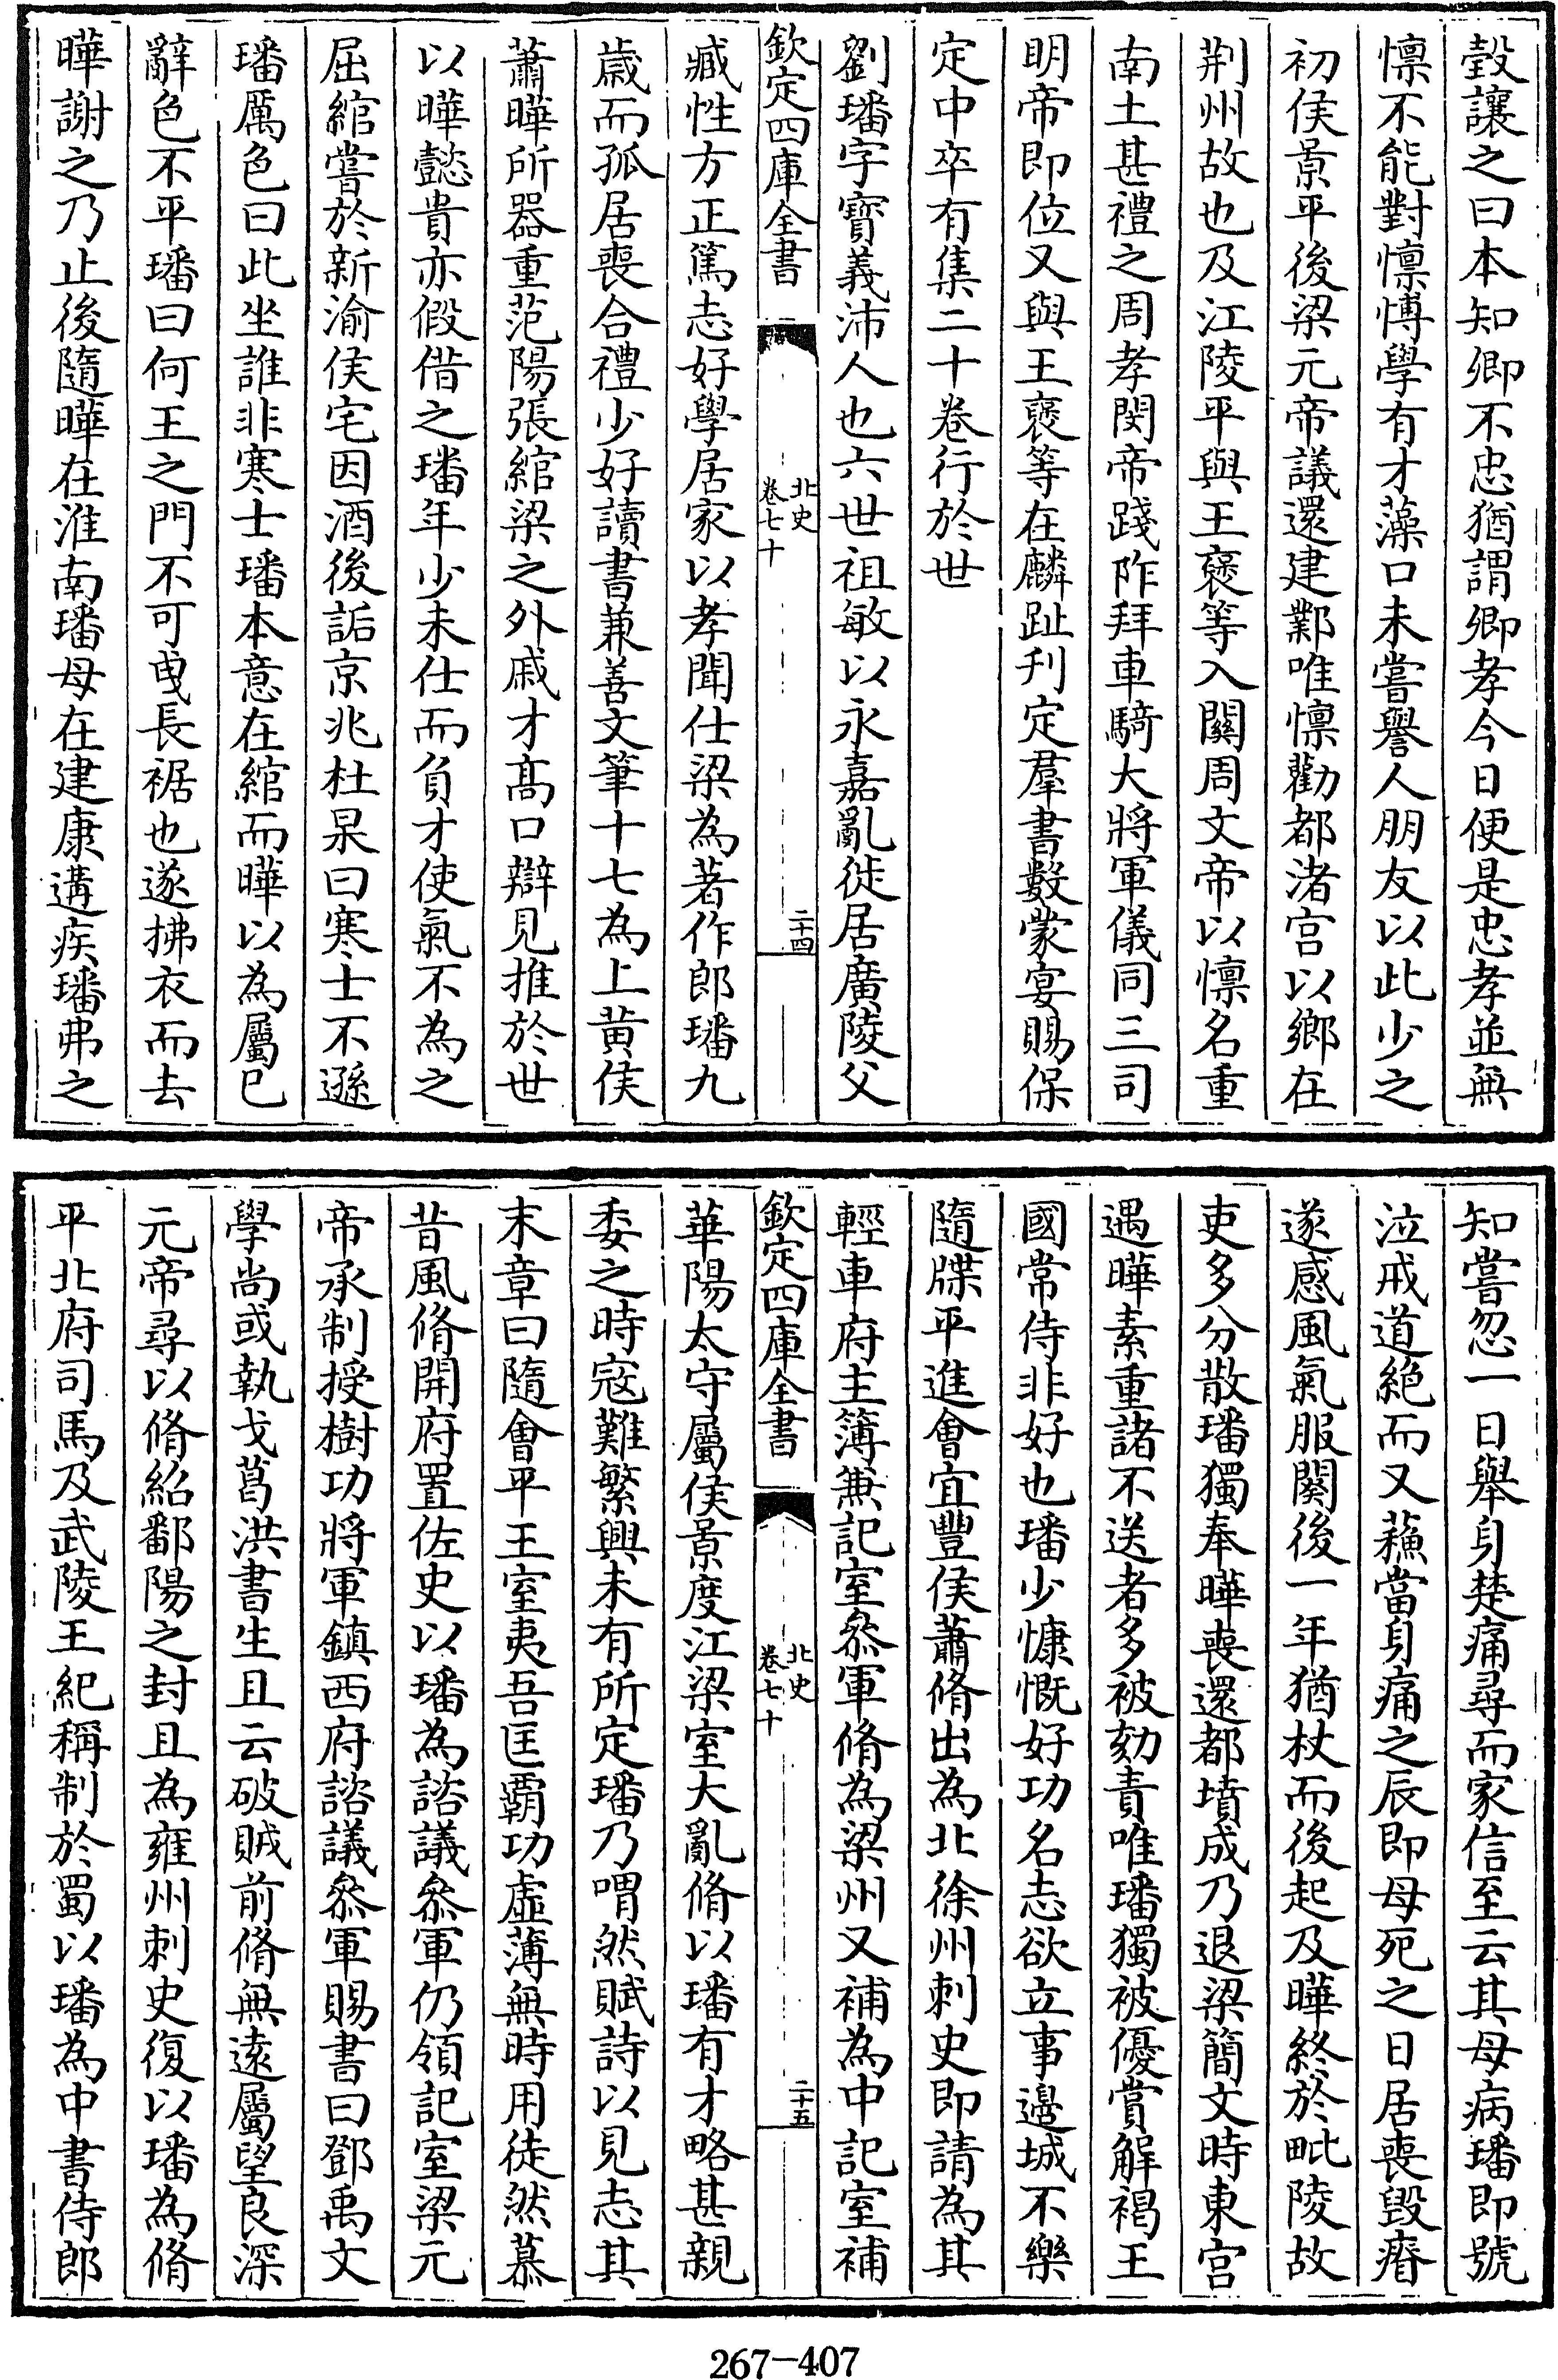 瑴讓之曰本知卿不忠猶謂卿孝今日便是忠孝並無
懍不能對懍博學有才藻口未嘗譽人朋友以此少之
初侯景平後梁元帝議還建鄴唯懍勸都渚宮以鄉在
荆州故也及江陵平與王褒等入關周文帝以懍名重
南土甚禮之周孝閔帝踐阼拜車騎大將軍儀同三司
明帝即位又與王褒等在麟趾刋定羣書數蒙宴賜保
定中卒有集二十卷行於世
劉璠字寳義沛人也六世祖敏以永嘉亂徙居廣陵父
欽定四庫全書
北史
卷七十
二十四
臧性方正篤志好學居家以孝聞仕梁為著作郎璠九
歳而孤居喪合禮少好讀書兼善文筆十七為上黄侯
蕭曄所器重范陽張綰梁之外戚才髙口辯見推於世
以曄懿貴亦假借之璠年少未仕而負才使氣不為之
屈綰嘗於新渝侯宅因酒後詬京兆杜杲曰寒士不遜
璠厲色曰此坐誰非寒士璠本意在綰而曄以為屬已
辭色不平璠曰何王之門不可曳長裾也遂拂衣而去
曄謝之乃止後隨曄在淮南璠母在建康遘疾璠弗之
知嘗忽一日舉身楚痛尋而家信至云其母病璠即號
泣戒道絶而又蘓當身痛之辰即母死之日居喪毀瘠
遂感風氣服闋後一年猶杖而後起及曄終於毗陵故
吏多分散璠獨奉曄喪還都墳成乃退梁簡文時東宮
遇曄素重諸不送者多被劾責唯璠獨被優賞解褐王
國常侍非好也璠少慷慨好功名志欲立事邉城不樂
隨牒平進會宜豐侯蕭脩出為北徐州刺史即請為其
輕車府主簿兼記室叅軍脩為梁州又補為中記室補
欽定四庫全書
北史
卷七十
二十五
華陽太守屬侯景度江梁室大亂脩以璠有才略甚親
委之時宼難繁興未有所定璠乃喟然賦詩以見志其
末章曰隨會平王室夷吾匡霸功虛薄無時用徒然慕
昔風脩開府置佐史以璠為諮議叅軍仍領記室梁元
帝承制授樹功將軍鎮西府諮議叅軍賜書曰鄧禹文
學尚或執戈葛洪書生且云破賊前脩無逺屬望良深
元帝尋以脩紹鄱陽之封且為雍州刺史復以璠為脩
平北府司馬及武陵王紀稱制於蜀以璠為中書侍郎
267-407